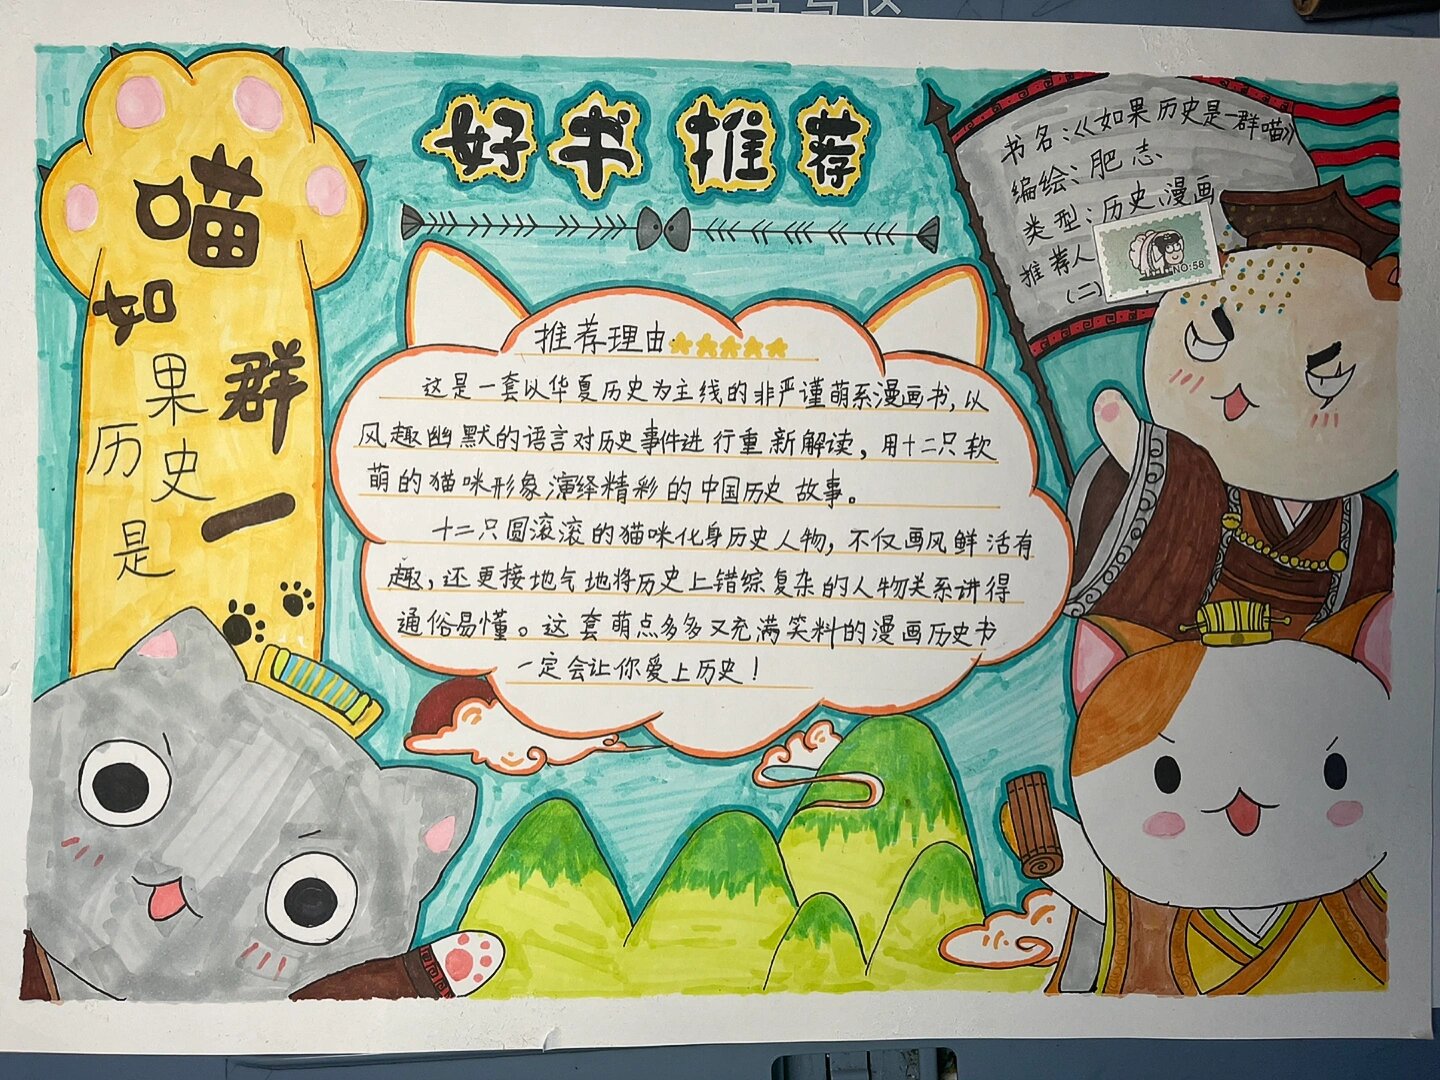 好书推荐
喵
如
果
历
史
是
群
一
书名:《如果历史是一群喵》
编绘:肥志
类型:历史、漫画
推荐人
(二)
NO:58
推荐理由
这是一套以华夏历史为主线的非严谨萌系漫画书,以
风趣幽默的语言对历史事件进行重新解读,用十二只软
萌的猫咪形象演绎精彩的中国历史故事。
十二只圆滚滚的猫咪化身历史人物,不仅画风鲜活有
趣,还更接地气地将历史上错综复杂的人物关系讲得
通俗易懂。这套萌点多多又充满笑料的漫画历史书
一定会让你爱上历史!